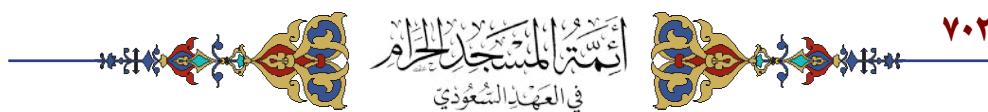 ٧٠٢
أَئِمَّةُ المَسْجِدِ الحَرَامِ
في العَهْدِ السُّعُودِيِّ